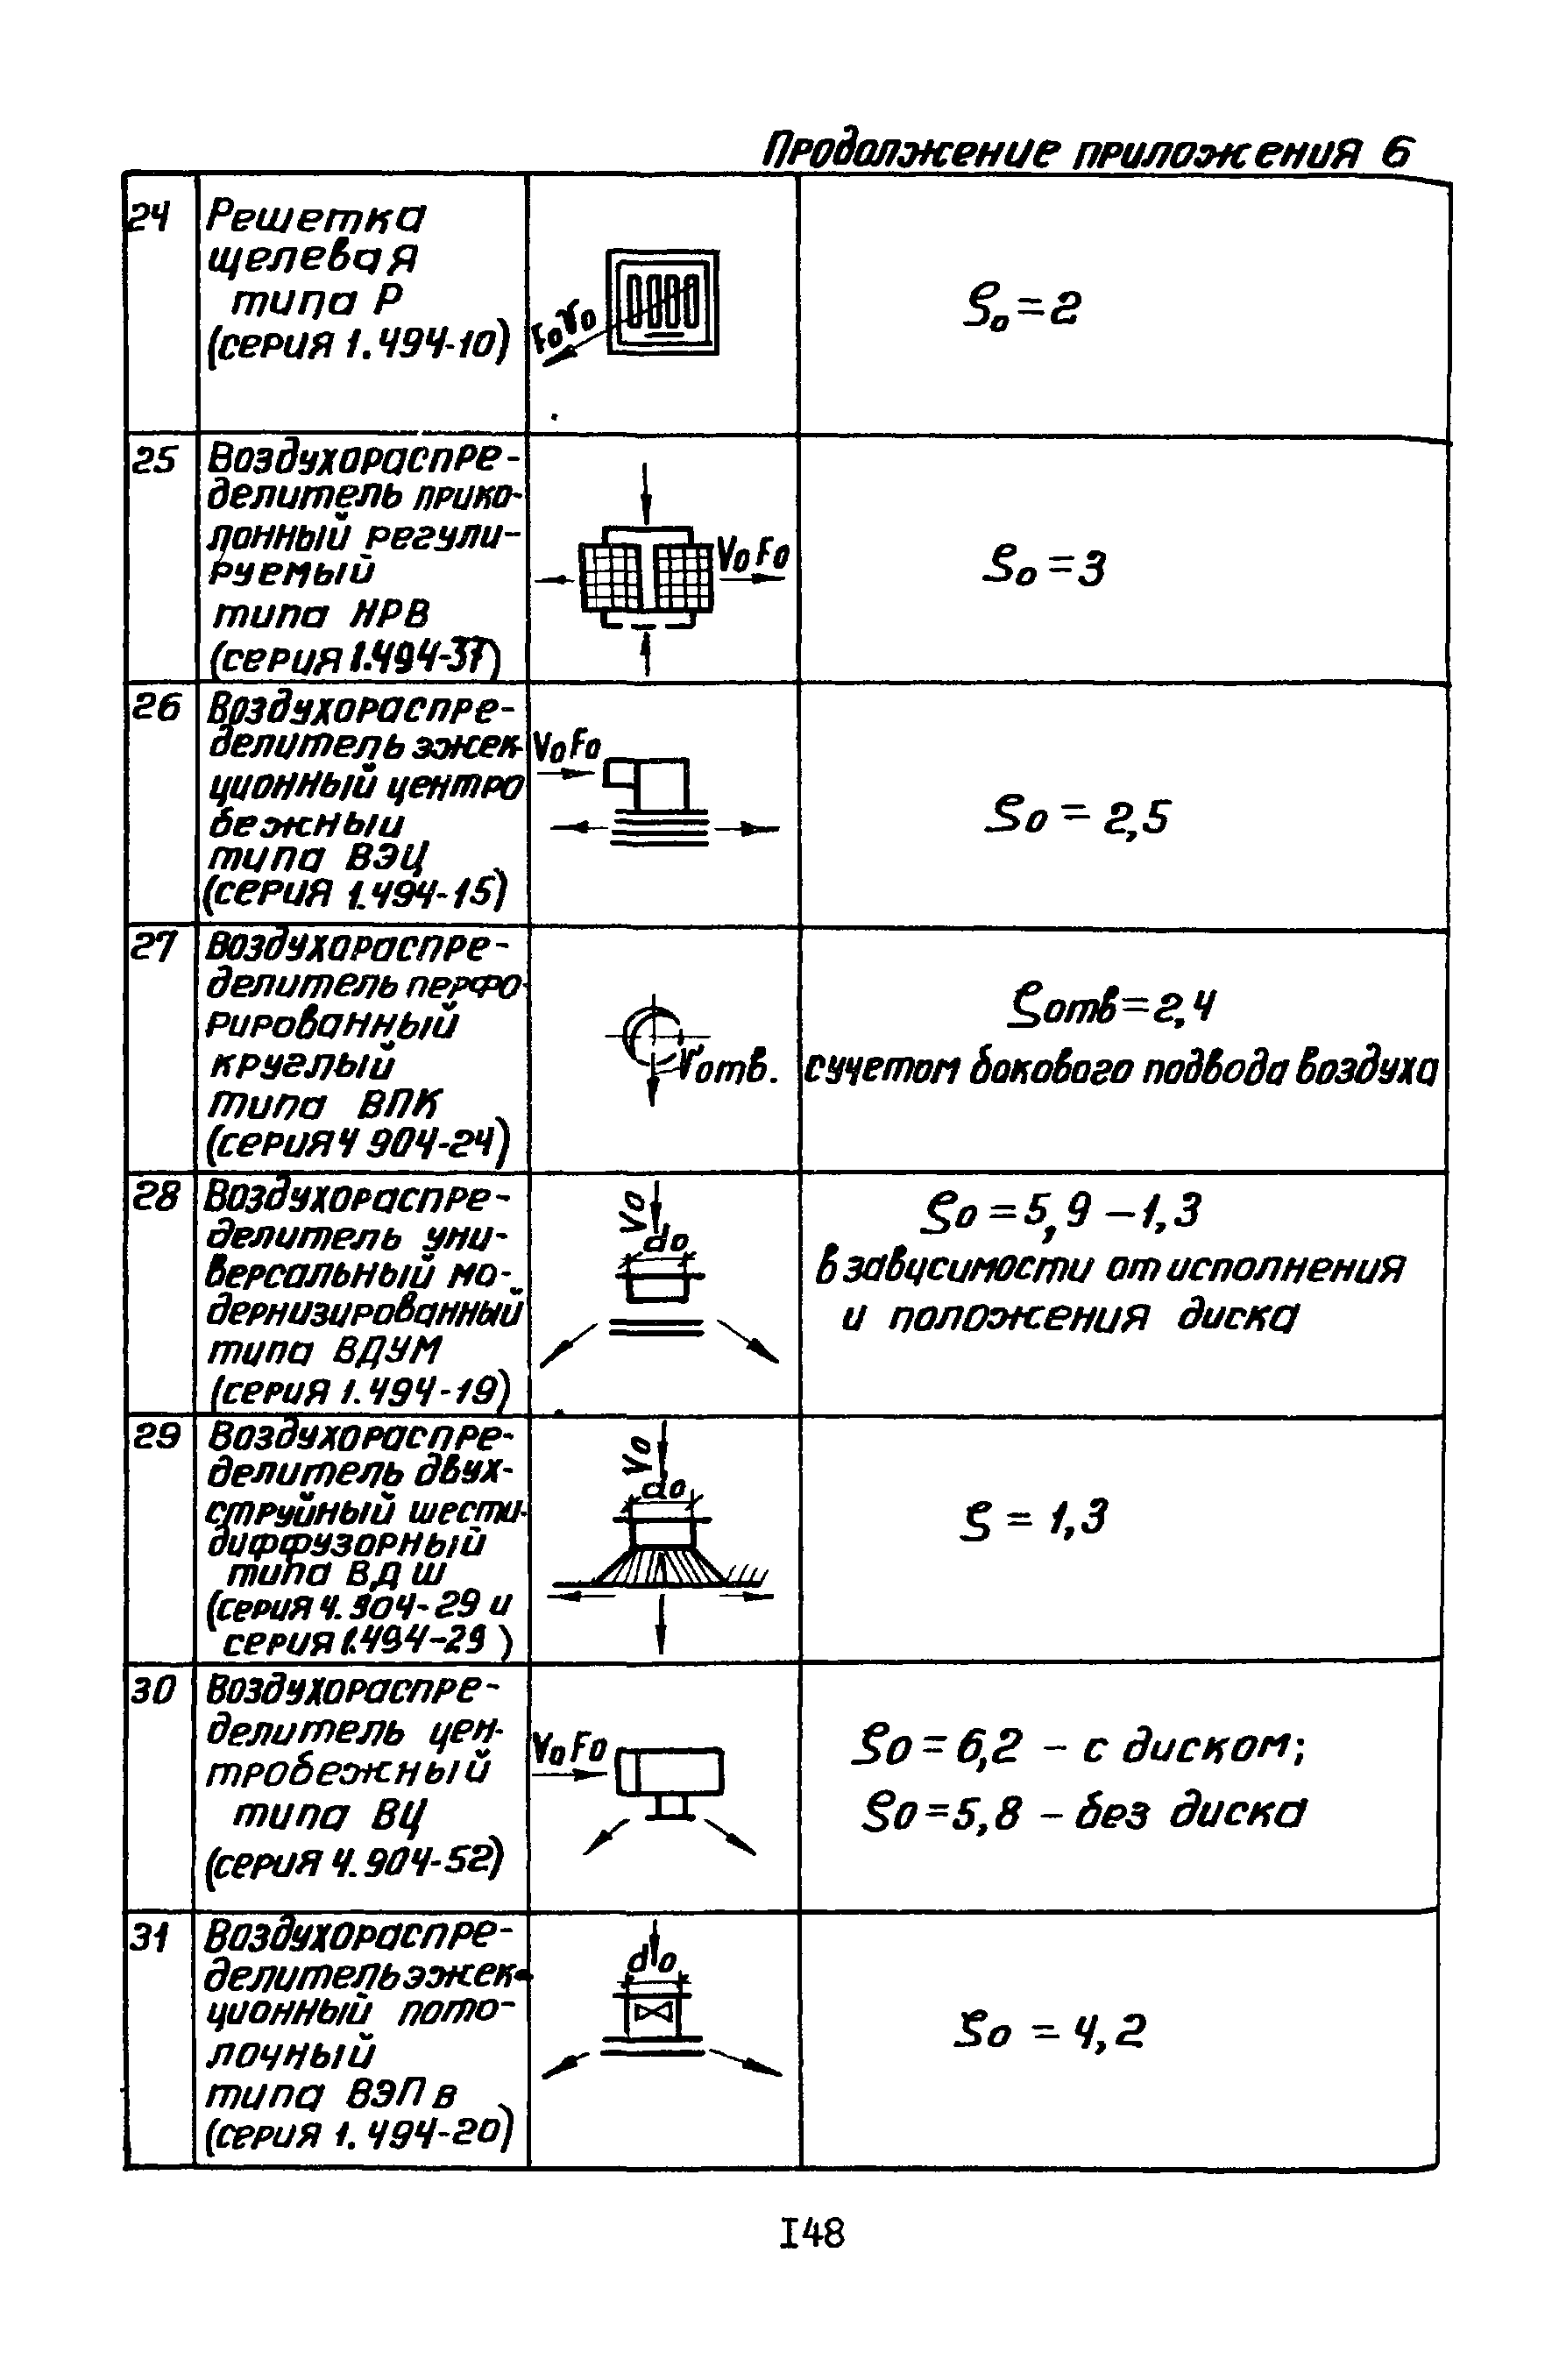 Продолжение приложения 6
24
Решетка
щелевая
типа Р
(серия 1.494-10)
F₀ V₀
ζ₀=2
25
Воздухораспре-
делитель прико-
лонный регули-
руемый
типа НРВ
(серия 1.494-37)
V₀ F₀
ζ₀=3
26
Воздухораспре-
делитель эжек-
ционный центро
бежный
типа ВЭЦ
(серия 1.494-15)
V₀ F₀
ζ₀ = 2,5
27
Воздухораспре-
делитель перфо-
рированный
круглый
типа ВПК
(серия 4 904-24)
Vотв.
ζотв=2,4
с учетом бокового подвода воздуха
28
Воздухораспре-
делитель уни-
версальный мо-
дернизированный
типа ВДУМ
(серия 1.494-19)
V₀
d₀
ζ₀ = 5,9 - 1,3
в зависимости от исполнения
и положения диска
29
Воздухораспре-
делитель двух-
струйный шести-
диффузорный
типа ВДШ
(серия 4.904-29 и
серия 1.494-29)
V₀
d₀
ζ = 1,3
30
Воздухораспре-
делитель цен-
тробежный
типа ВЦ
(серия 4.904-52)
V₀ F₀
ζ₀ = 6,2 - с диском;
ζ₀ = 5,8 - без диска
31
Воздухораспре-
делитель эжек-
ционный пото-
лочный
типа ВЭПв
(серия 1.494-20)
d₀
ζ₀ = 4,2
I48